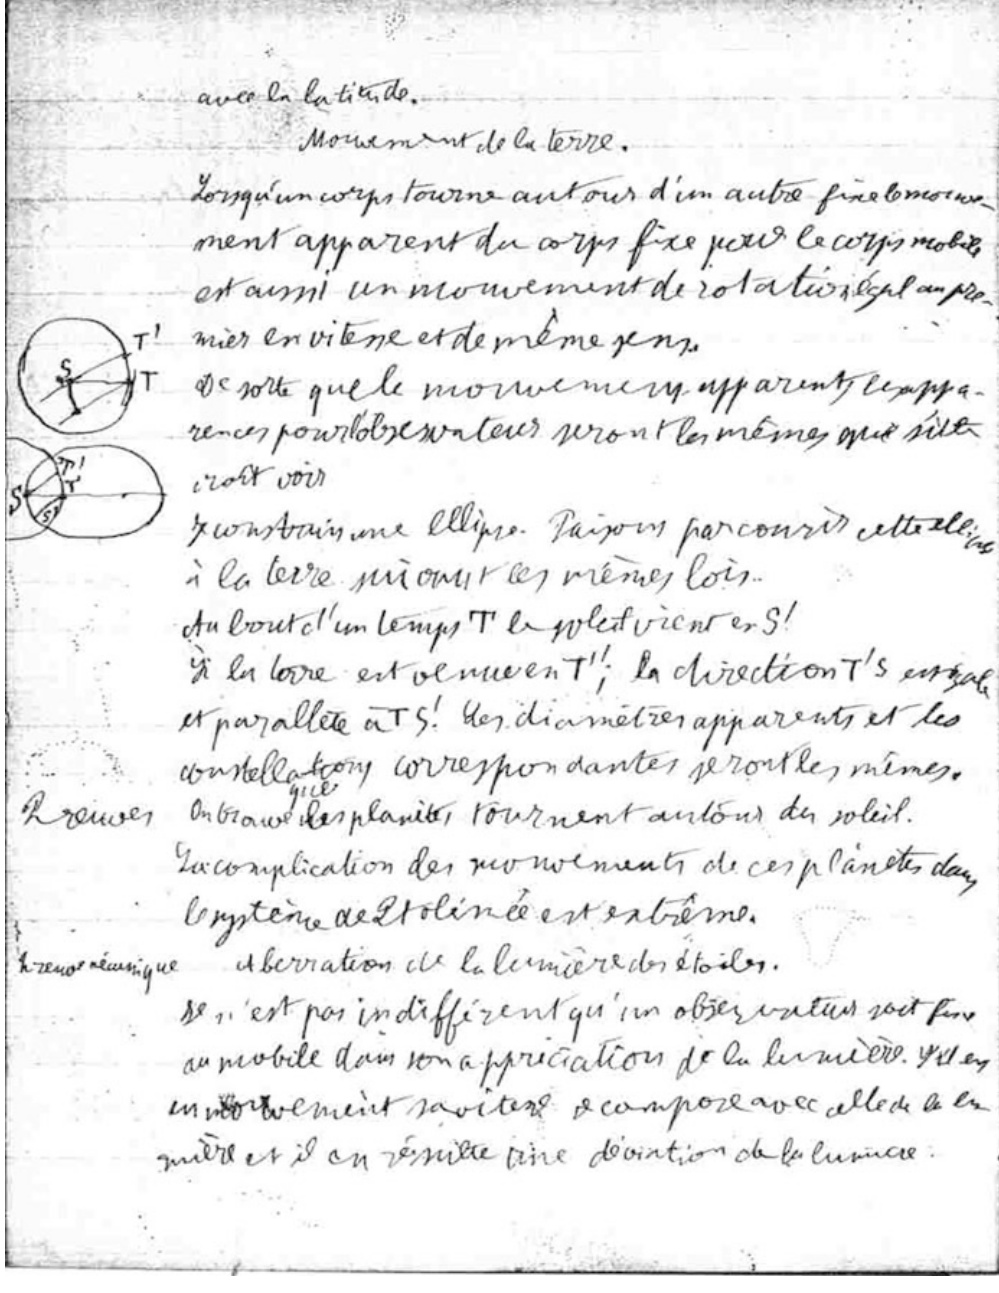 avec la latitude.
Mouvement de la terre.
Lorsqu'un corps tourne autour d'un autre fixe le mouve-
ment apparent du corps fixe pour le corps mobile
est aussi un mouvement de rotation égal au pre-
mier en vitesse et de même sens.
T'
S
T
De sorte que le mouvement apparent, les appa-
rences pour l'observateur seront les mêmes que s'il
croit voir
T'
T
S
S'
construis une ellipse. Faisons parcourir cette ellipse
à la terre suivant les mêmes lois.
Au bout d'un temps T le soleil vient en S'
Si la terre est venue en T'; la direction T'S est égale
et parallèle à TS'. Les diamètres apparents et les
constellations correspondantes seront les mêmes.
Preuves On trouve que les planètes tournent autour du soleil.
La complication des mouvements de ces planètes dans
le système de Ptolémée est extrême.
Preuve mécanique Aberration de la lumière des étoiles.
n'est pas indifférent qu'un observateur soit fixe
ou mobile dans son appréciation de la lumière. S'il est
en mouvement sa vitesse se compose avec celle de la lu
mière et il en résulte une déviation de la lumière.